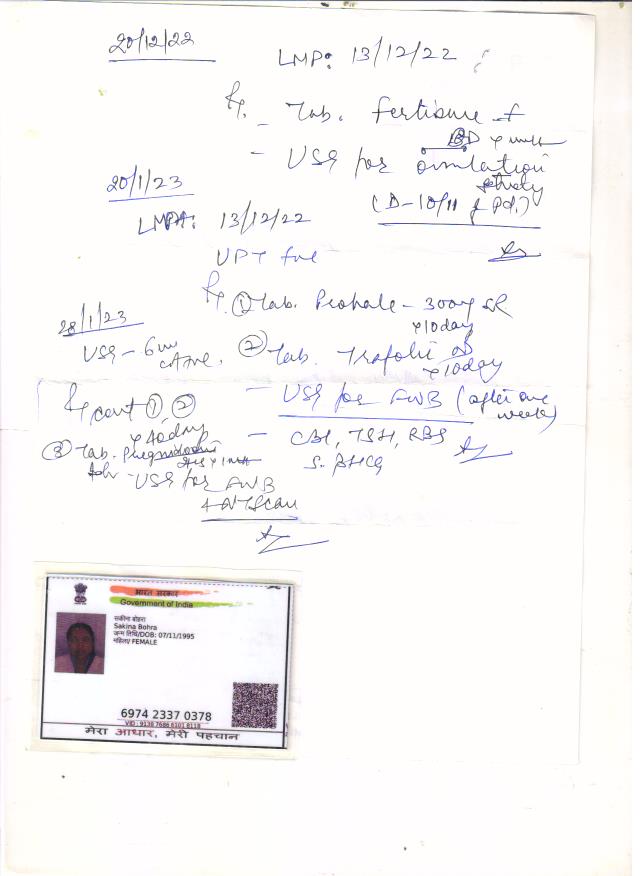 20/12/22
LMP: 13/12/22
Rx.
- Tab. Fertisure F
BD x
- USG for ovulation
study
(D-10/11 of Pd.)
20/1/23
LMP: 13/12/22
UPT +ve
Rx. ① Tab. - 300mg SR
x 10 day
② Tab. Trafolic OD
x 10 day
- USG for FWB (after one
week)
- CBC, TSH, RBS
S. βHCG
28/1/23
USG - 6w
Rx cont ①, ②
x day
③ Tab.
Adv - USG for FWB
+ NT Scan
भारत सरकार
Government of India
सकीना बोहरा
Sakina Bohra
जन्म तिथि/DOB: 07/11/1995
महिला/ FEMALE
6974 2337 0378
VID : 9138 7686 8101 8118
मेरा आधार, मेरी पहचान